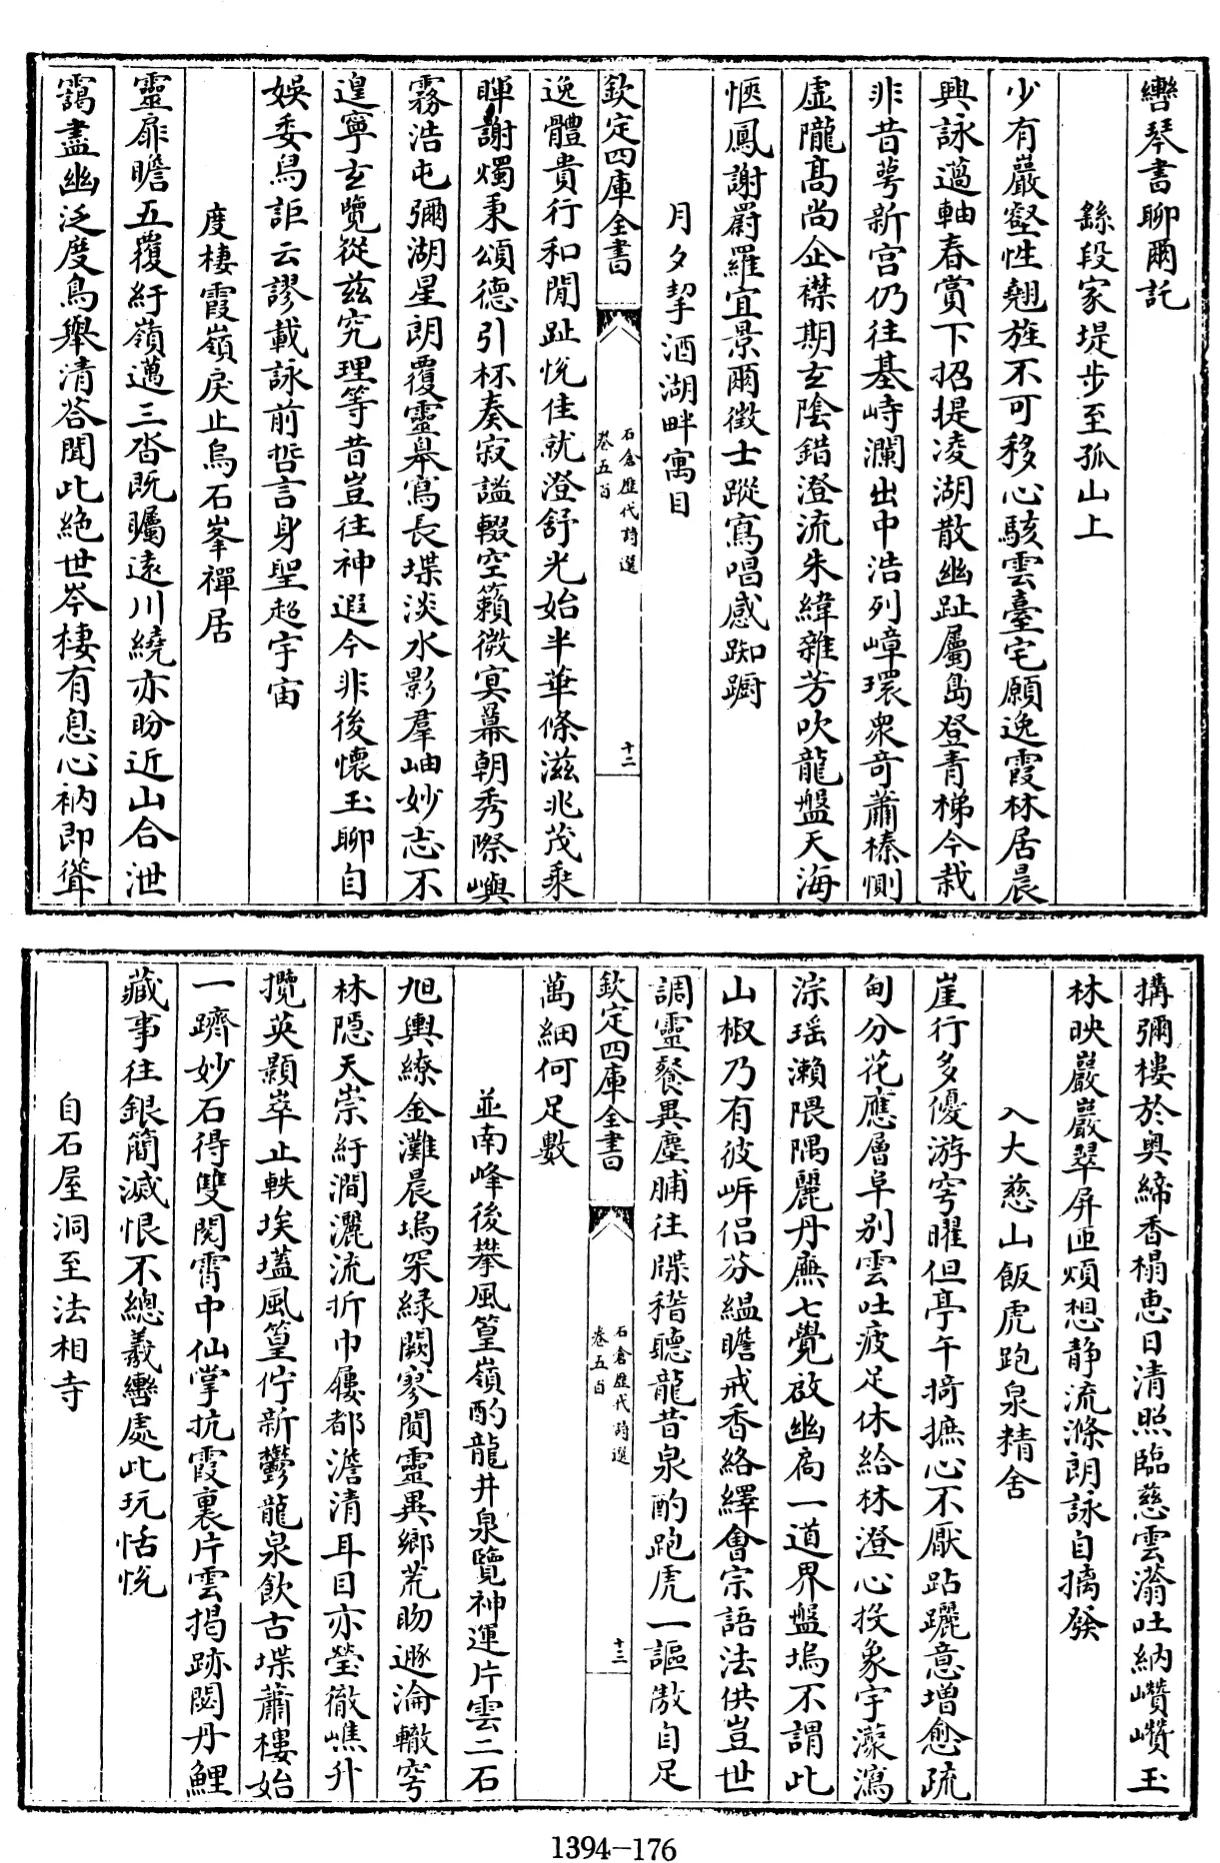 轡琴書聊爾託
繇段家堤步至孤山上
少有巖壑性翹旌不可移心駭雲臺宅願逸霞林居晨
興詠薖軸春賞下招提凌湖散幽趾屬島登青梯今栽
非昔萼新宮仍往基峙瀾出中浩列嶂環衆奇蕭榛惻
虛隴高尚企襟期玄陰錯澄流朱緯雜芳吹龍盤天海
愜鳳謝罻羅宜景爾徵士蹤寫唱感踟躕
月夕挈酒湖畔寓目
欽定四庫全書
石倉歷代詩選
卷五百
十二
逸體貴行和閒趾悅佳就澄舒光始半華條滋兆茂乘
暉謝燭秉頌德引杯奏寂謐輟空籟微寞幕朝秀際嶼
霧浩屯彌湖星朗覆靈皋寫長堞淡水影羣岫妙志不
遑寧玄覽從兹究理等昔豈往神遐今非後懷玉聊自
娛委烏詎云謬載詠前哲言身聖超宇宙
度棲霞嶺戾止烏石峯禪居
靈扉瞻五覆紆嶺邁三沓既矚遠川繞亦盼近山合泄
靄盡幽泛度鳥舉清荅聞此絶世岑棲有息心衲即聳
搆彌樓於奥締香榻恵日清照臨慈雲瀚吐納巑巑玉
林映巖巖翠屏匝煩想静流滌朗詠自摛發
入大慈山飯虎跑泉精舍
崖行多優游穹曜但亭午掎摭心不厭跕躧意增愈疏
甸分花應層阜别雲吐疲足休給林澄心投象宇濛瀉
淙瑶瀨隈隅麗丹廡七覺啟幽扃一道界盤塢不謂此
山椒乃有彼岍侣芬緼瞻戒香絡繹會宗語法供豈世
調靈餐異塵脯往牒稽聽龍昔泉酌跑虎一謳敖自足
欽定四庫全書
石倉歷代詩選
卷五百
十三
萬細何足數
並南峰後攀風篁嶺酌龍井泉覽神運片雲二石
旭輿繚金灘晨塢罙緑闕寥閴靈異鄉荒昒遯淪轍穹
林隱天崇紆澗灑流折巾屨都澹清耳目亦瑩徹嶕升
攬英顥崒止軼埃壒風篁佇新鬱龍泉飲古堞蕭樓始
一躋妙石得雙閱霄中仙掌抗霞裏片雲揭跡閟丹鯉
藏事往銀簡滅恨不總羲轡處此玩恬悦
自石屋洞至法相寺
1394-176